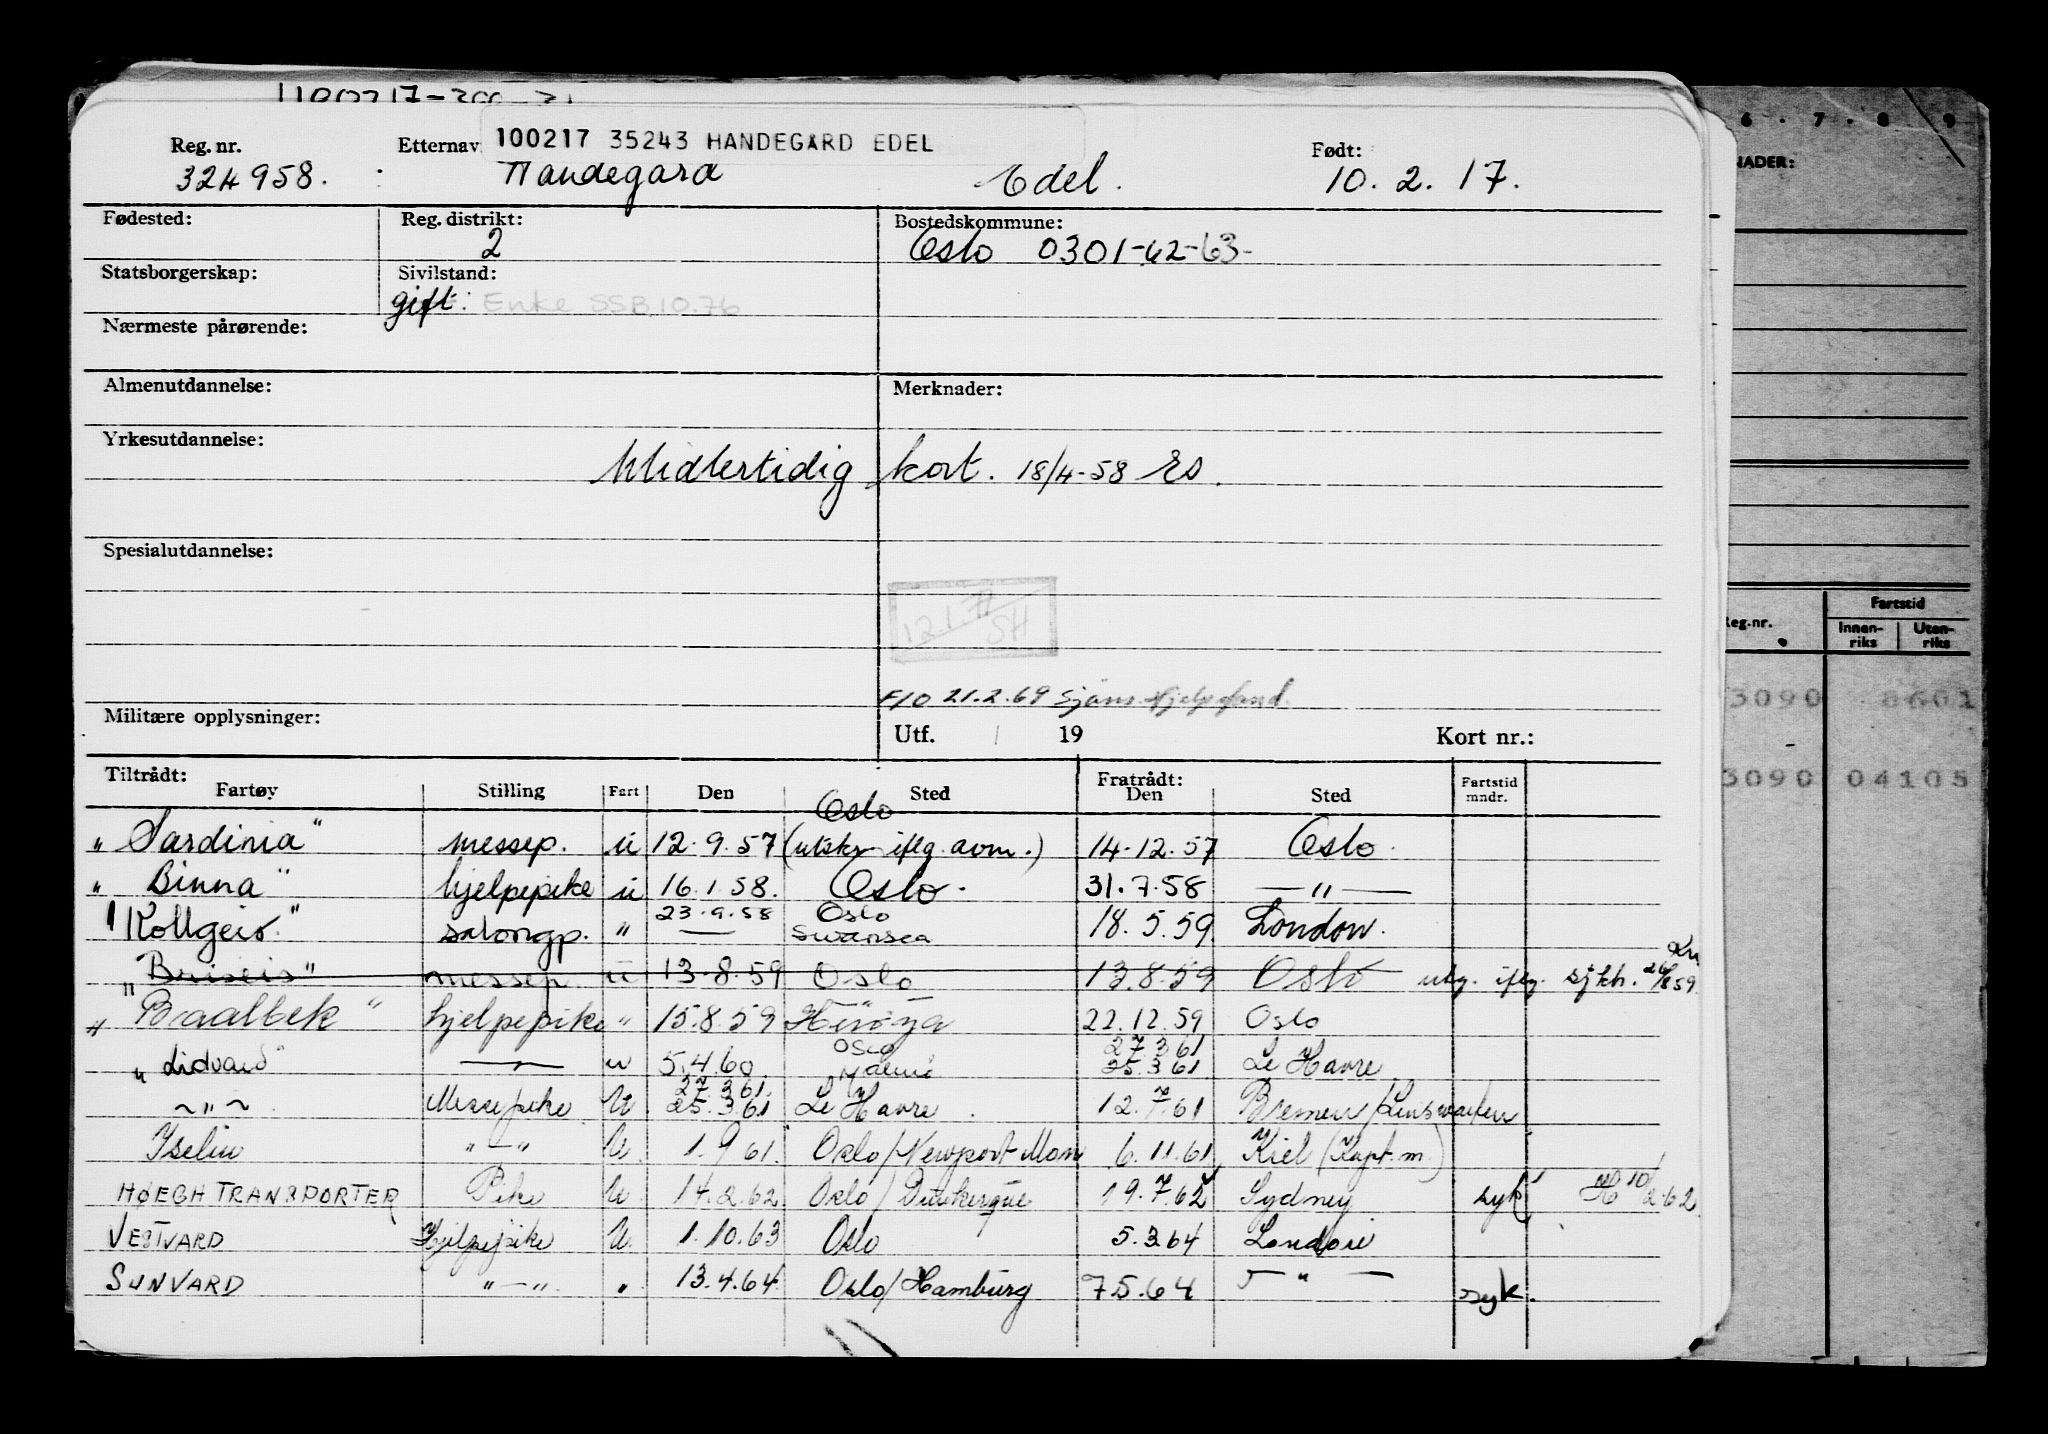 100217 35243 HANDEGARD EDEL
Reg. nr. Etternav Født:
324958. Handegard Edel. 10. 2. 17.
Fødested: Reg. distrikt: 2 Bostedskommune: Oslo 0301-62-63-
Statsborgerskap: Sivilstand: gift. Enke SSB 10.76
Nærmeste pårørende:
Almenutdannelse: Merknader:
Yrkesutdannelse:
Midlertidig kort. 18/4-58 Es.
Spesialutdannelse:
12.1.77 SH
F/O 21.2.69 Sjöms. Hjelpefond.
Militære opplysninger: Utf. 19 Kort nr.:
Tiltrådt: Fratrådt:
Fartøy Stilling Fart Den Sted Den Sted Fartstid mndr.
Oslo
" Sardinia" messep. u 12.9.57 (utskr iflg. avm.) 14.12.57 Oslo.
" Binna" hjelpepike u 16.1.58. Oslo. 31.7.58 —"—
23.9.58 Oslo
"Kollgeir." salongp. " — Swansea 18.5.59 London.
"Briseis" messep u 13-8.59 Oslo 13.8.59 Oslo utg. iflg. sjkh. 26/8 59
" Braalbek " hjelpepike " 15.8.59 Herøya 22.12.59 Oslo
Oslo 27.3.61
" Lidvard" — u 5.4.60 Malmö 25.3.61 Le Havre
27.3.61
~"~ Messepike U 25.3.61 Le Havre. 12.7.61 Bremen/
Iselin "—" U. 1.9.61. Oslo/Newport Mon 6.11.61 Kiel (Kapt. m.)
HØEGH TRANSPORTER Pike U 14.2.62 Oslo / Dunkerque 19.7.62 Sydney syk 10/2-62
VESTVARD Hjelpepike U. 1.10.63 Oslo 5.3.64 London
SUNVARD "—". " 13.4.64 Oslo/Hamburg 7.5.64 —"— syk.
6 . 7 . 8 . 9
NADER:
Reg.nr. Fartstid
Innen-riks Uten-riks
3090 0601
3090 04105